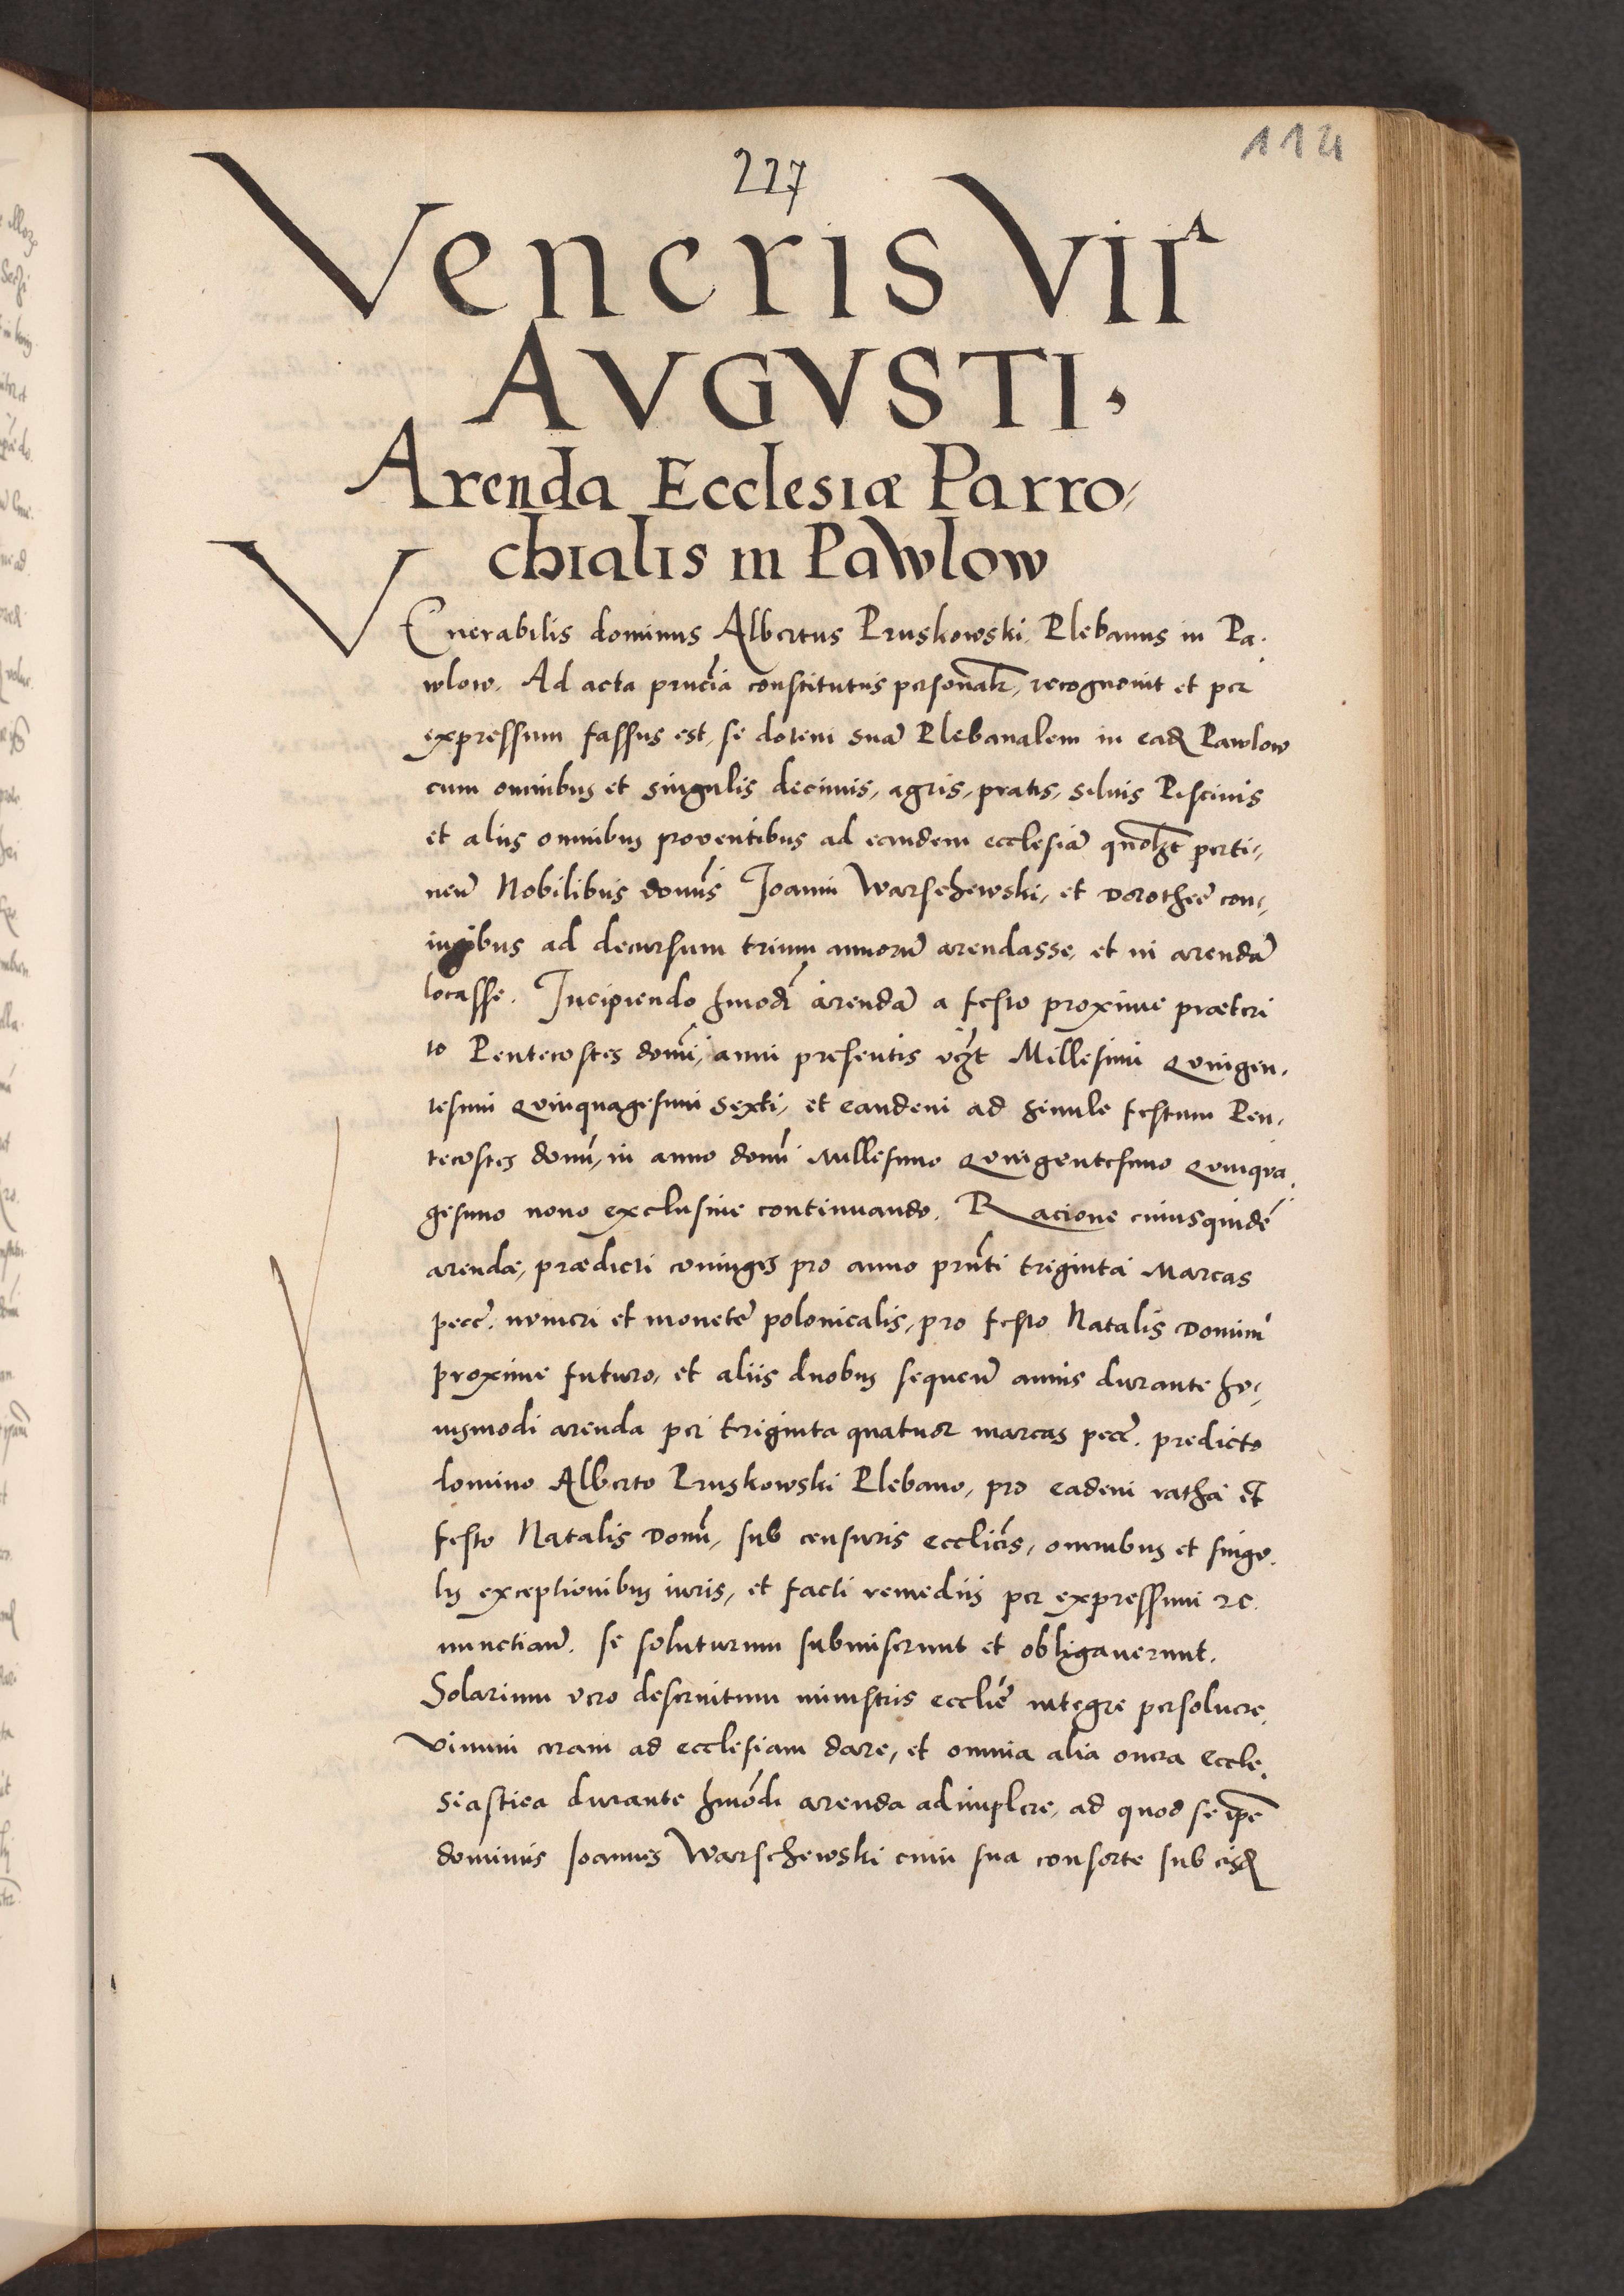 114
227
Veneris VIIᴬ
AVGVSTI.
Arenda Ecclesiæ Parro-
chialis in Pawlow
VEnerabilis dominus Albertus Pruskowski, Plebanus in Pa-
wlow. Ad acta prñcia constitutus personalr, recognovit et per
expressum fassus est, se dotem suā Plebanalem in eađ Pawlow
cum omnibus et singulis decimis, agris, pratis, siluis Piscinis
et aliis omnibus proventibus ad eandem ecclesiā qūolʒt perti-
neñ Nobilibus domīs Joanni Warschewski, et Dorotheē con-
iugibus ad decursum trium annorū arendasse, et in arendā
locasse. Incipiendo hmōdi arendā a festo proxime præteri
to Pentecostes domī, anni presentis vʒt Millesimi Quingen-
tesimi Quinquagesimi sexti, et eandem ad simile festum Pen-
tecostes domī, in anno domī Millesimo Quingentesimo Quinqua
gesimo nono exclusiue continuando. Racione cuiusquidē
arendæ, prædicti coniuges pro anno prñti triginta Marcas
pecc̄. numeri et monete polonicalis, pro festo Natalis Dominī
proxime futuro, et aliis duobus sequeñ annis durante hu-
iusmodi arenda per triginta quatuor marcas pecc̄. predicto
domino Alberto Pruskowski Plebano, pro eadem ratha et
festo Natalis Domī, sub censuris ecclīcis, omnibus et singu-
lis exceptionibus iuris, et facti remediis per expressum re-
nunctiañ. se soluturum submiserunt et obligauerunt.
Solarium vero deservitum ministris eccliē integre persoluere,
vinum ceram ad ecclesiam dare, et omnia alia onera Eccle-
siastica durante hmōdi arenda adimplere, ad quod se ipē
dominus Joannes Warschewski cum sua consorte sub eisđ